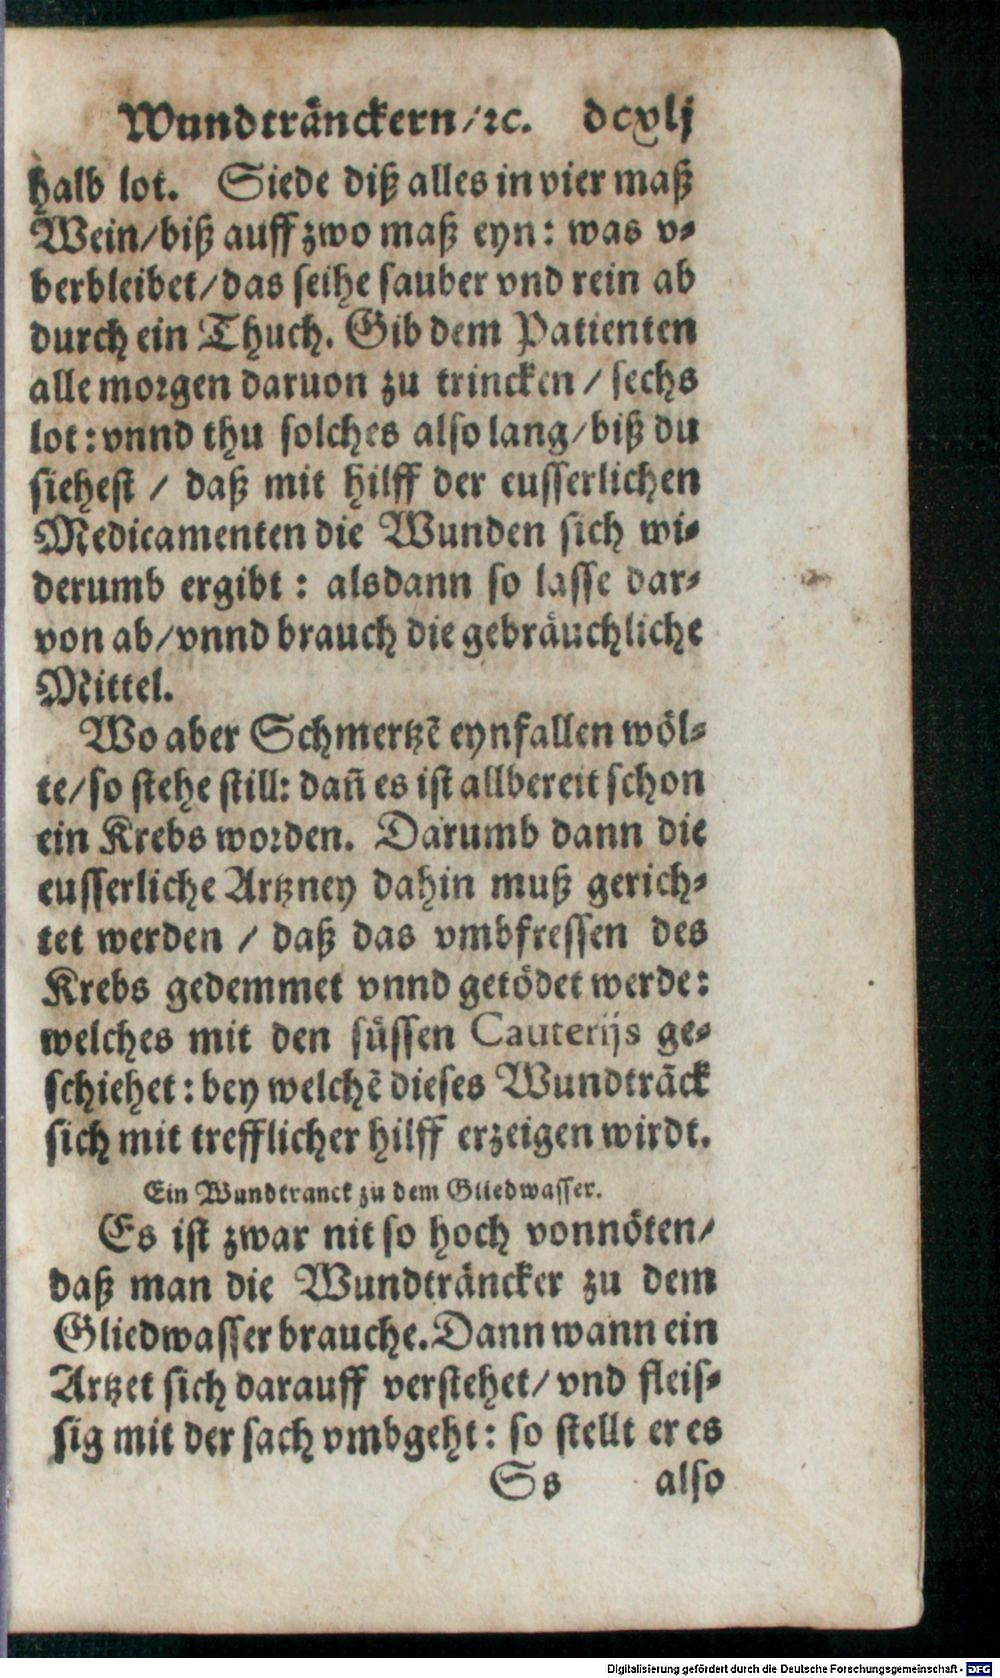 Wundtränckern/ꝛc. dcxlj
halb lot. Siede diß alles in vier maß
Wein/biß auff zwo maß eyn: was v⸗
berbleibet/das seihe sauber vnd rein ab
durch ein Thuch. Gib dem Patienten
alle morgen daruon zu trincken / sechs
lot: vnnd thu solches also lang/biß du
siehest / daß mit hilff der eusserlichen
Medicamenten die Wunden sich wi⸗
derumb ergibt : alsdann so lasse dar⸗
von ab/vnnd brauch die gebräuchliche
Mittel.
Wo aber Schmertzẽ eynfallen wöl⸗
te/so stehe still: dañ es ist allbereit schon
ein Krebs worden. Darumb dann die
eusserliche Artzney dahin muß gerich⸗
tet werden / daß das vmbfressen des
Krebs gedemmet vnnd getödet werde:
welches mit den süssen Cauterijs ge⸗
schiehet: bey welchẽ dieses Wundträck
sich mit trefflicher hilff erzeigen wirdt.
Ein Wundtranck zu dem Gliedwasser.
Es ist zwar nit so hoch vonnöten/
daß man die Wundträncker zu dem
Gliedwasser brauche. Dann wann ein
Artzet sich darauff verstehet/ vnd fleis⸗
sig mit der sach vmbgeht: so stellt er es
Ss also
Digitalisierung gefördert durch die Deutsche Forschungsgemeinschaft - DFG